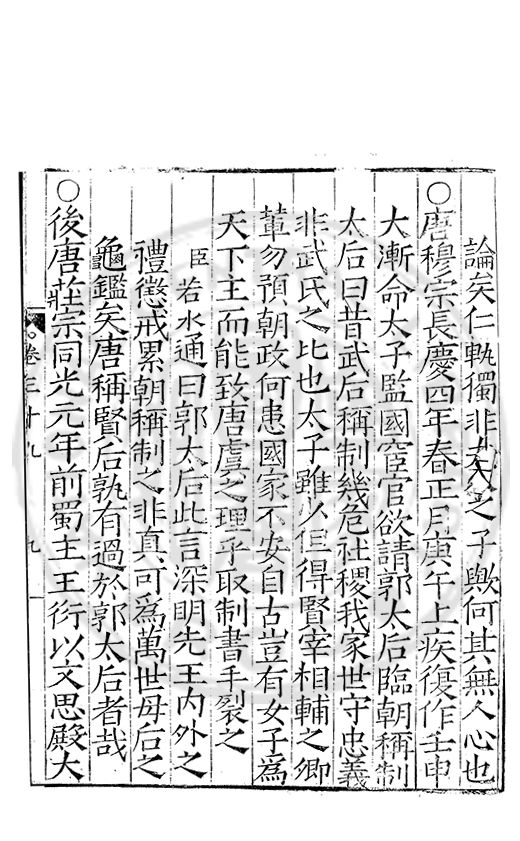 論矣仁軌獨非夫之子歟何其無人心也
○唐穆宗長慶四年春正月庚午上疾復作壬申
大漸命太子監國宦官欲請郭太后臨朝稱制
太后曰昔武后稱制幾危社稷我家世守忠義
非武氏之比也太子雖少但得賢宰相輔之卿
輩勿預朝政何患國家不安自古豈有女子為
天下主而能致唐虞之理乎取制書手裂之
臣若水通曰郭太后此言深明先王內外之
禮懲戒累朝稱制之非真可為萬世母后之
龜鑑矣唐稱賢后孰有過於郭太后者哉
○後唐莊宗同光元年前蜀主王衍以文思殿大
卷三十九
九